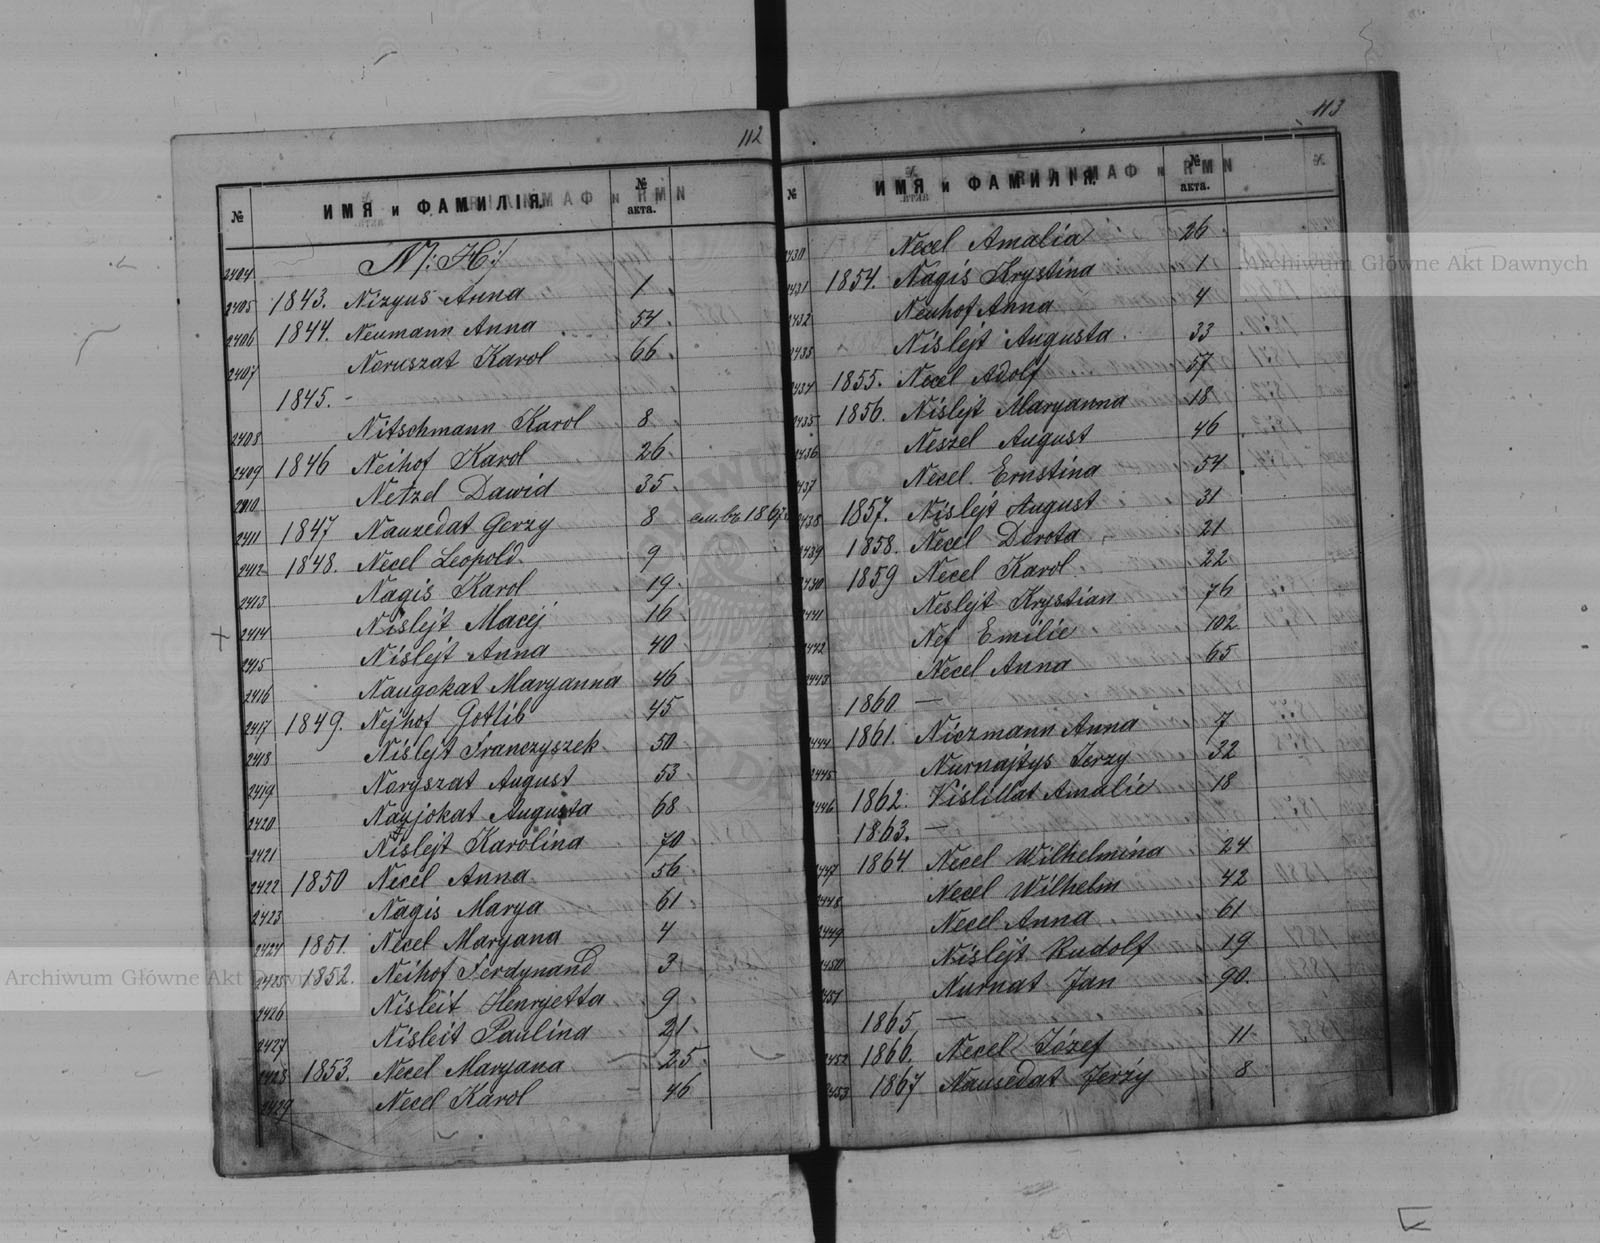 112
№ ИМЯ и ФАМИЛІЯ. № акта.
2404 N /:H:/
2405 1843. Nizgus Anna 1
2406 1844. Neumann Anna 54.
2407 Noruszat Karol 66.
1845. -
2408 Nitschmann Karol 8.
2409 1846 Neihof Karol 26.
2410 Netzel Dawid 35.
2411 1847 Nauzedat Gerzy 8 см. въ 1867.
2412 1848. Necel Leopold. 9
2413 Nagis Karol 19.
2414 Nislejt Maciej 16.
2415 Nislejt Anna 40.
2416 Naugokat Maryanna 46
2417 1849. Nejhof Gotlib 45
2418 Nislejt Franczyszek. 50.
2419 Norgszat August 53.
2420 Nayjokat Augusta 68
2421 Nislejt Karolina 70.
2422 1850 Necel Anna 56
2423 Nagis Marya 61.
2424 1851. Necel Maryana 4
2425 1852. Neihof Ferdynand 3
2426 Nisleit Henryetta 9
2427 Nisleit Paulina 21
2428 1853. Necel Maryana 25.
2429 Necel Karol - 46
113
№ ИМЯ и ФАМИЛІЯ. № акта.
2430 Necel Amalia 26
2431 1854. Nagis Krystina 1
2432 Neuhof Anna 4
2433 Nislejt Augusta. 33
2434 1855. Necel Adolf 57
2435 1856. Nislejt Maryanna 18
2436 Neszel August 46
2437 Necel Ernstina 54
2438 1857. Nislejt August 31
2439 1858. Necel Dorota 21
2440 1859 Necel Karol. 22
2441 Neslejt Krystian 76
2442 Nef Emilie 102
2443 Necel Anna 65
1860 —
2444 1861. Niczmann Anna 7
2445 Nurnajtys Jerzy 32
2446 1862. Amalie 18
1863. —
2447 1864. Necel Wilhelmina 24
2448 Necel Wilhelm 42
2449 Necel Anna 61
2450 Nislejt Rudolf 19
2451 Nurnat Jan 90.
1865 —
2452 1866. Necel Józef 11
2453 1867 Nausedat Jerzy 8
Archiwum Główne Akt Dawnych
Archiwum Główne Akt Dawnych